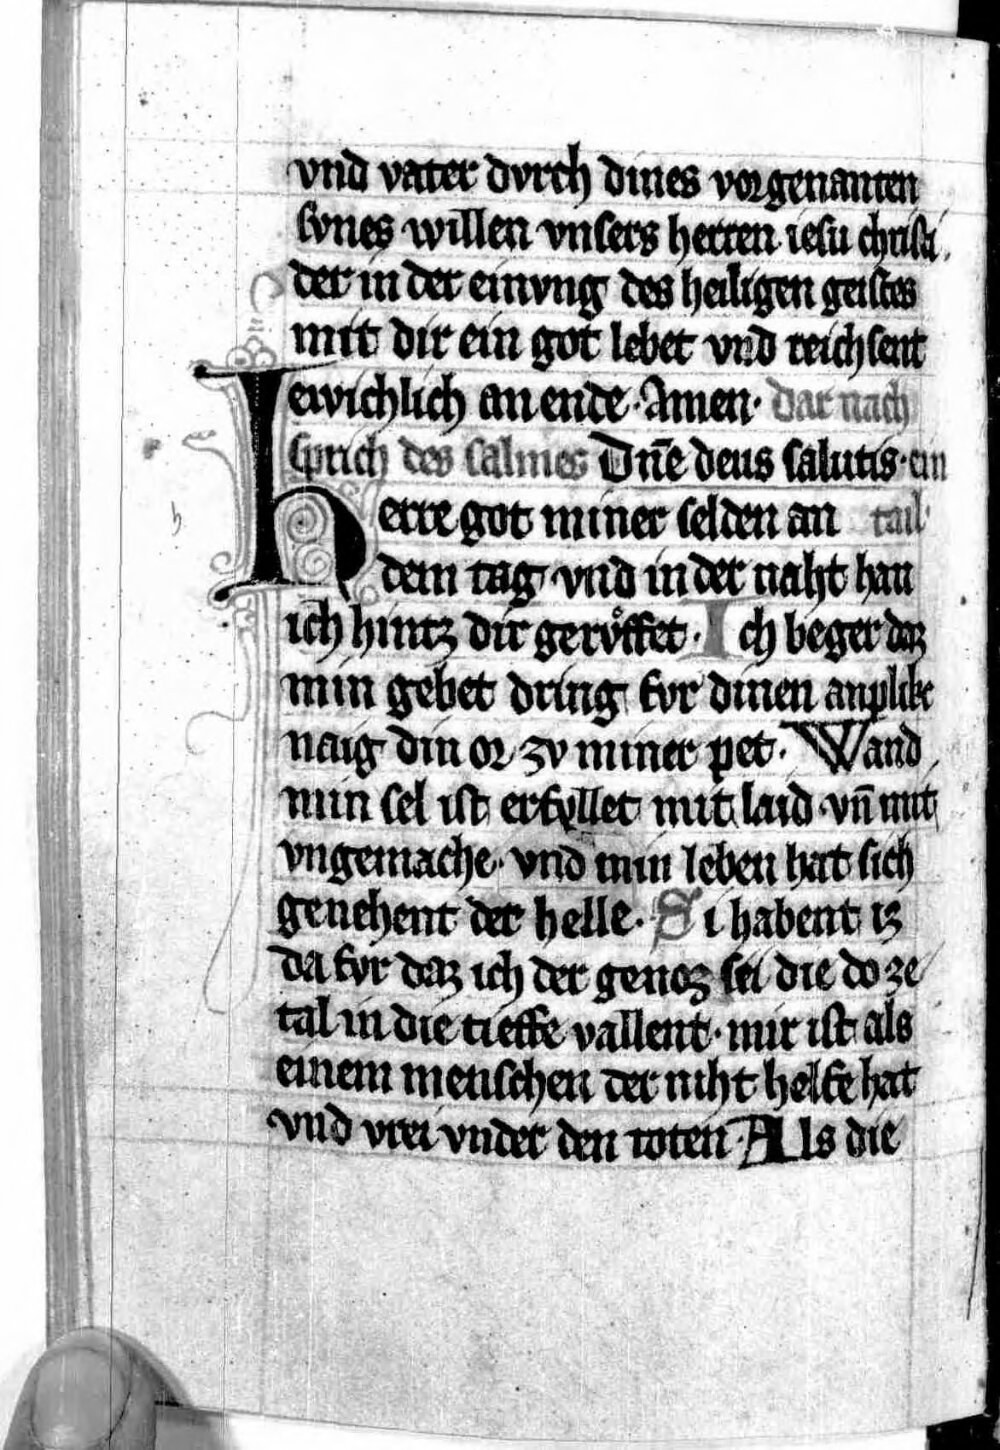 vnd vater dvrch dines vorgenanten
svnes willen vnsers herren iesu christi,
der in der einvng des heiligen geistes
mit dir ein got lebet vnd reichsent
ewichlich an ende · Amen · dar nach
sprich des salmes Dn̄e deus salutis · ein
Herre got miner selden an tail·
dem tag vnd in der naht han
ich hintz dir gerv̊ffet · Ich beger daz
min gebet dring fvr dinen anplikc
naig din or zv miner pet · Wand
min sel ist erfvllet mit laid · vn̄ mit
vngemache · vnd min leben hat sich
genehent der helle · Si habent iz
da fvr daz ich der genoz sei die do ze
tal in die tieffe vallent · mir ist als
einem menschen der niht helfe hat
vnd vrei vnder den toten · Als die
h